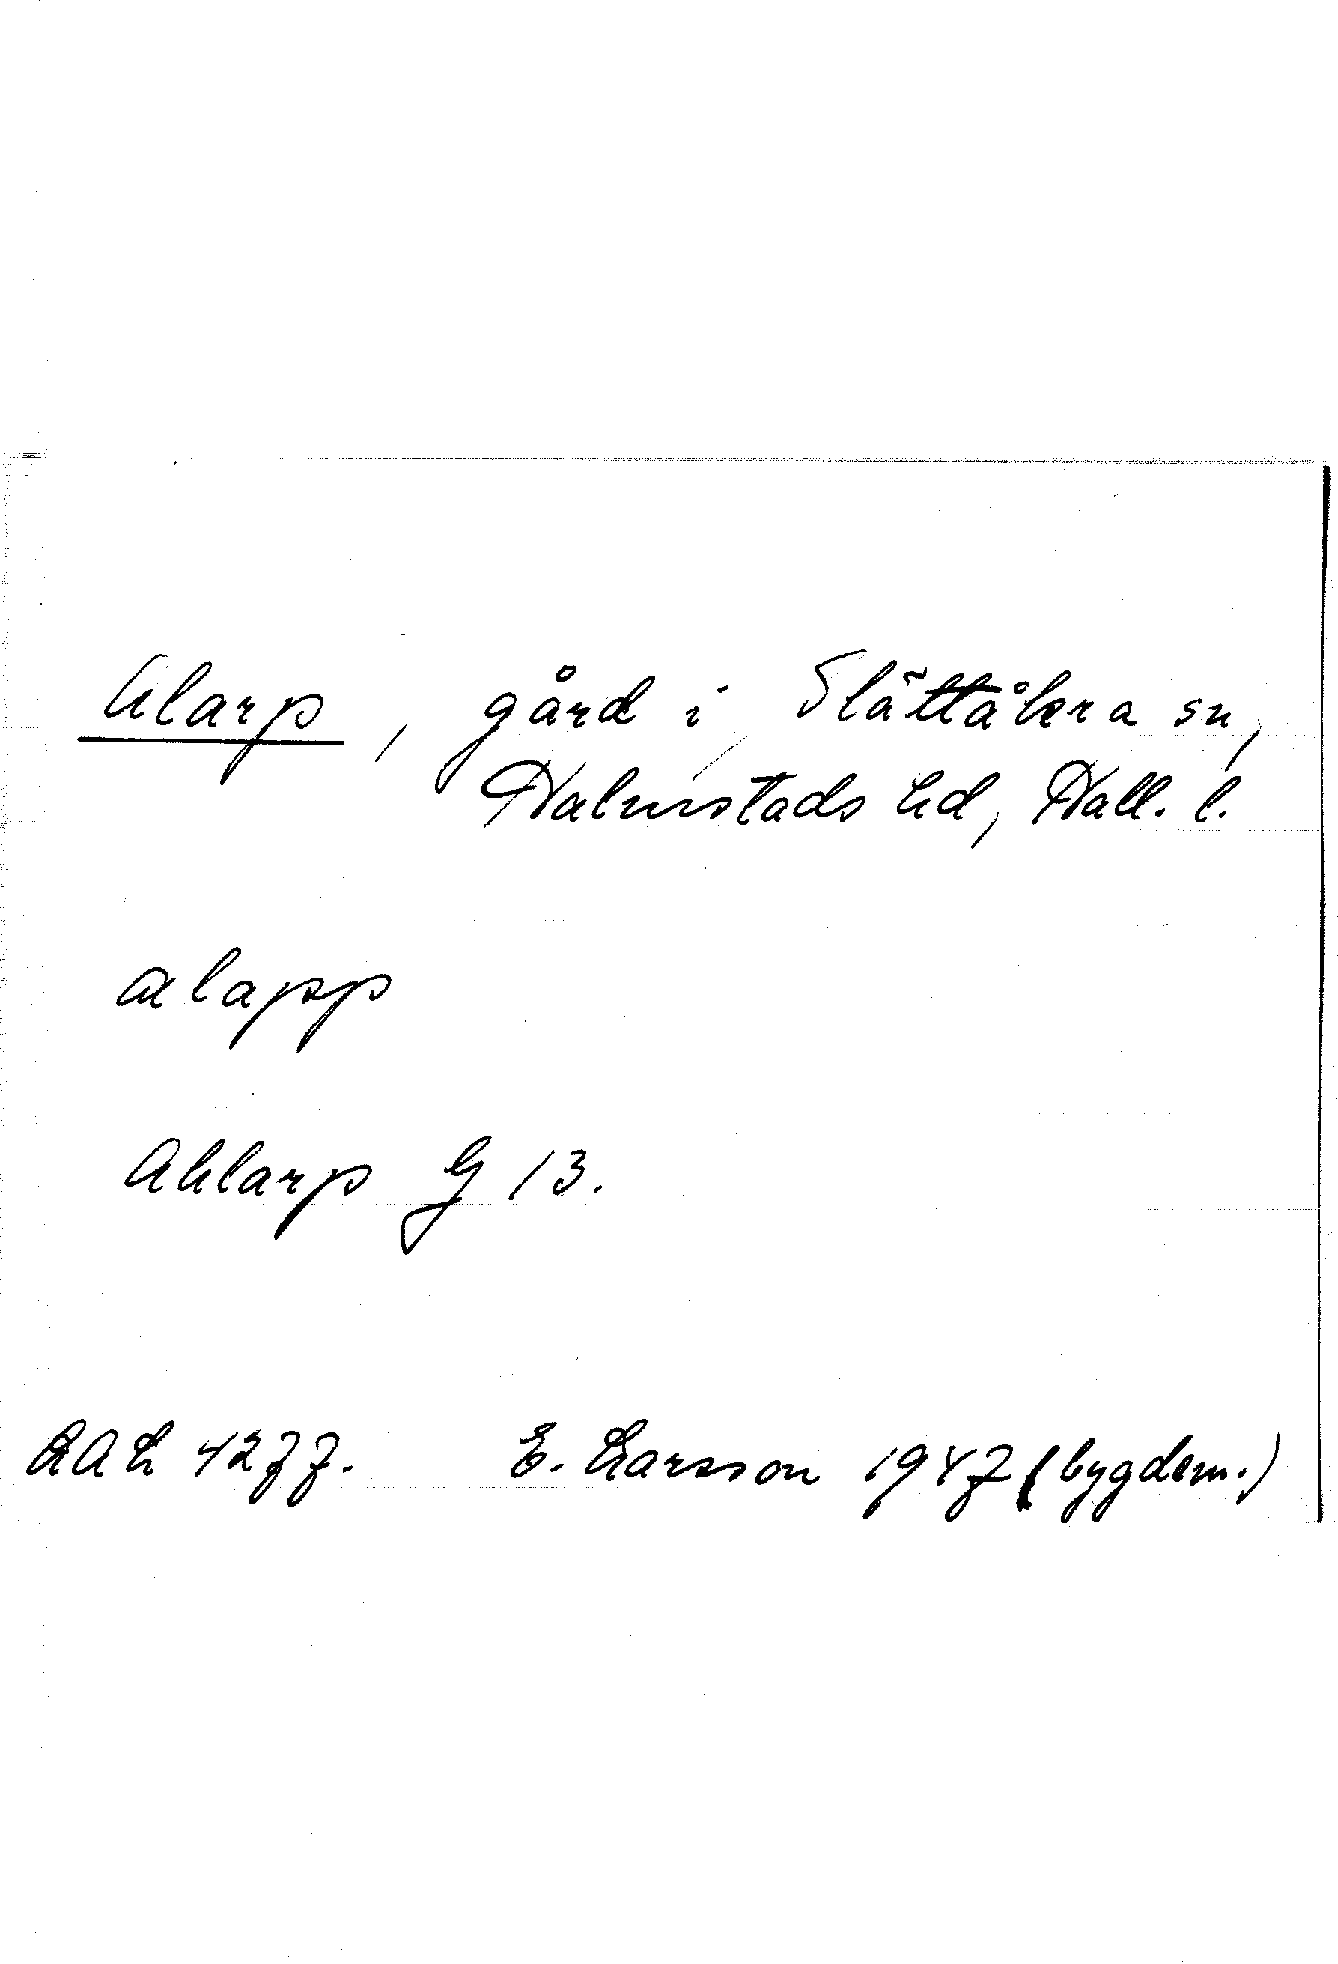 Alarp, gård i Slättåkra sn,
Halmstads hd, Hall. l.
alapp
Ahlarp G 13.
4277. E. Larsson 1947 (bygdem.)